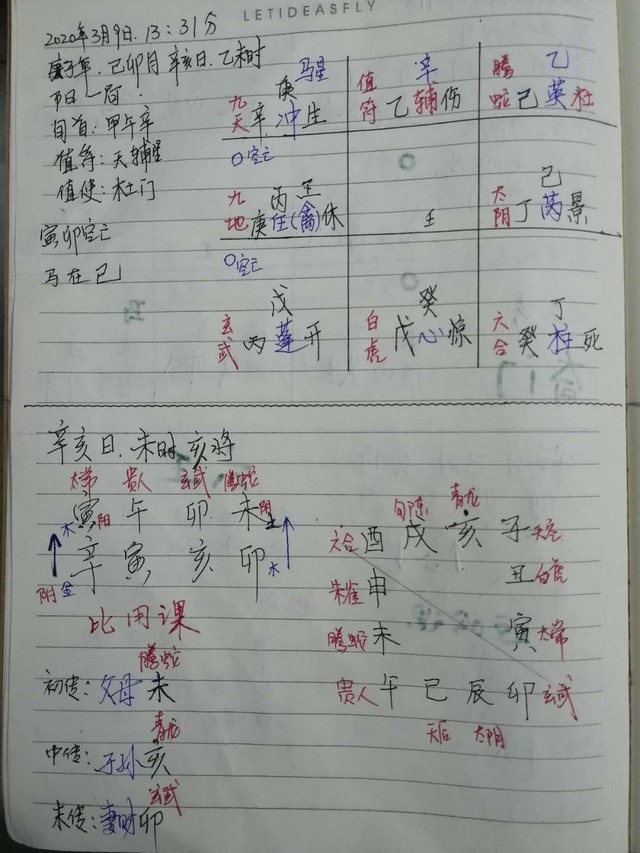 LETIDEASFLY
2020年3月9日.13:31分
庚子年.己卯月 辛亥日.乙未时
阳一局.
旬首:甲午辛
值符:天辅星
值使:杜门
寅卯空亡
马在巳
庚 马星
九天 辛 冲 生
空亡
辛
值符 乙 辅 伤
乙
腾蛇 己 英 杜
丙 壬
九地 庚 任(禽)休
空亡
壬
己
太阴 丁 芮 景
戊
玄武 丙 蓬 开
癸
白虎 戊 心 惊
丁
六合 癸 柱 死
辛亥日.未时 亥将
太常 贵人 玄武 腾蛇
木 寅阳 午 卯 未阴土
阴金 辛 寅 亥 卯 木
比用课
腾蛇
初传:父母未
青龙
中传:子孙亥
玄武
末传:妻财卯
勾陈 青龙
六合 酉 戌 亥 子 天空
朱雀 申 丑 白虎
腾蛇 未 寅 太常
贵人 午 巳 辰 卯 玄武
天后 太阴